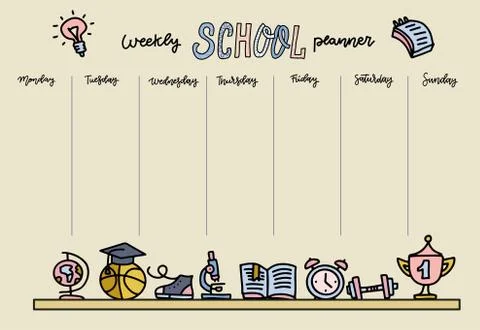 weekly SCHOOL planner
Monday Tuesday Wednesday Thursday Friday Saturday Sunday
1